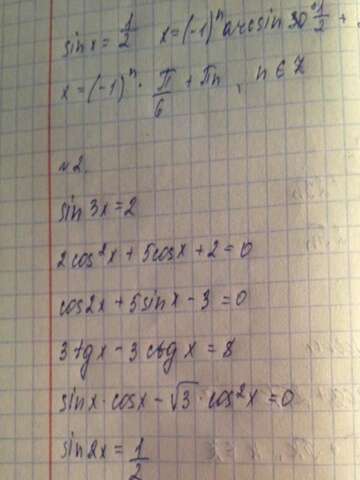 sin x = 1/2 x = (-1)ⁿ arcsin 1/2 +
x = (-1)ⁿ · π/6 + πn, n ∈ Z
№2.
sin 3x = 2
2cos²x + 5cosx + 2 = 0
cos2x + 5sinx - 3 = 0
3tgx - 3ctgx = 8
sinx · cosx - √3 · cos²x = 0
sin2x = 1/2